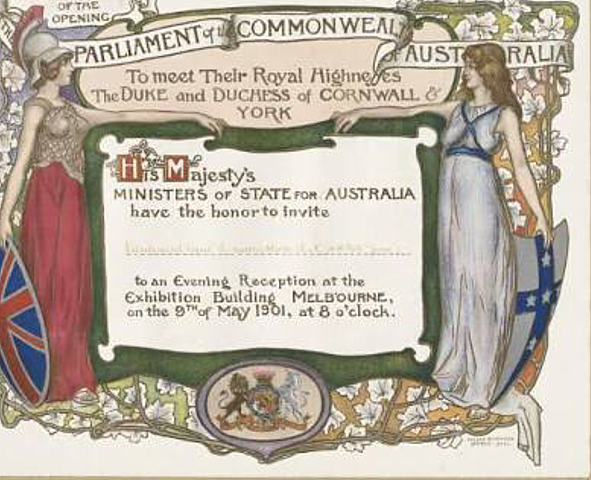 OF THE
OPENING
PARLIAMENT of the COMMONWEALT
of AUSTRALIA
To meet Their Royal Highnesses
The DUKE and DUCHESS of CORNWALL &
YORK
His Majesty's
MINISTERS OF STATE FOR AUSTRALIA
have the honor to invite
to an Evening Reception at the
Exhibition Building MELBOURNE,
on the 9TH of May 1901, at 8 o'clock.